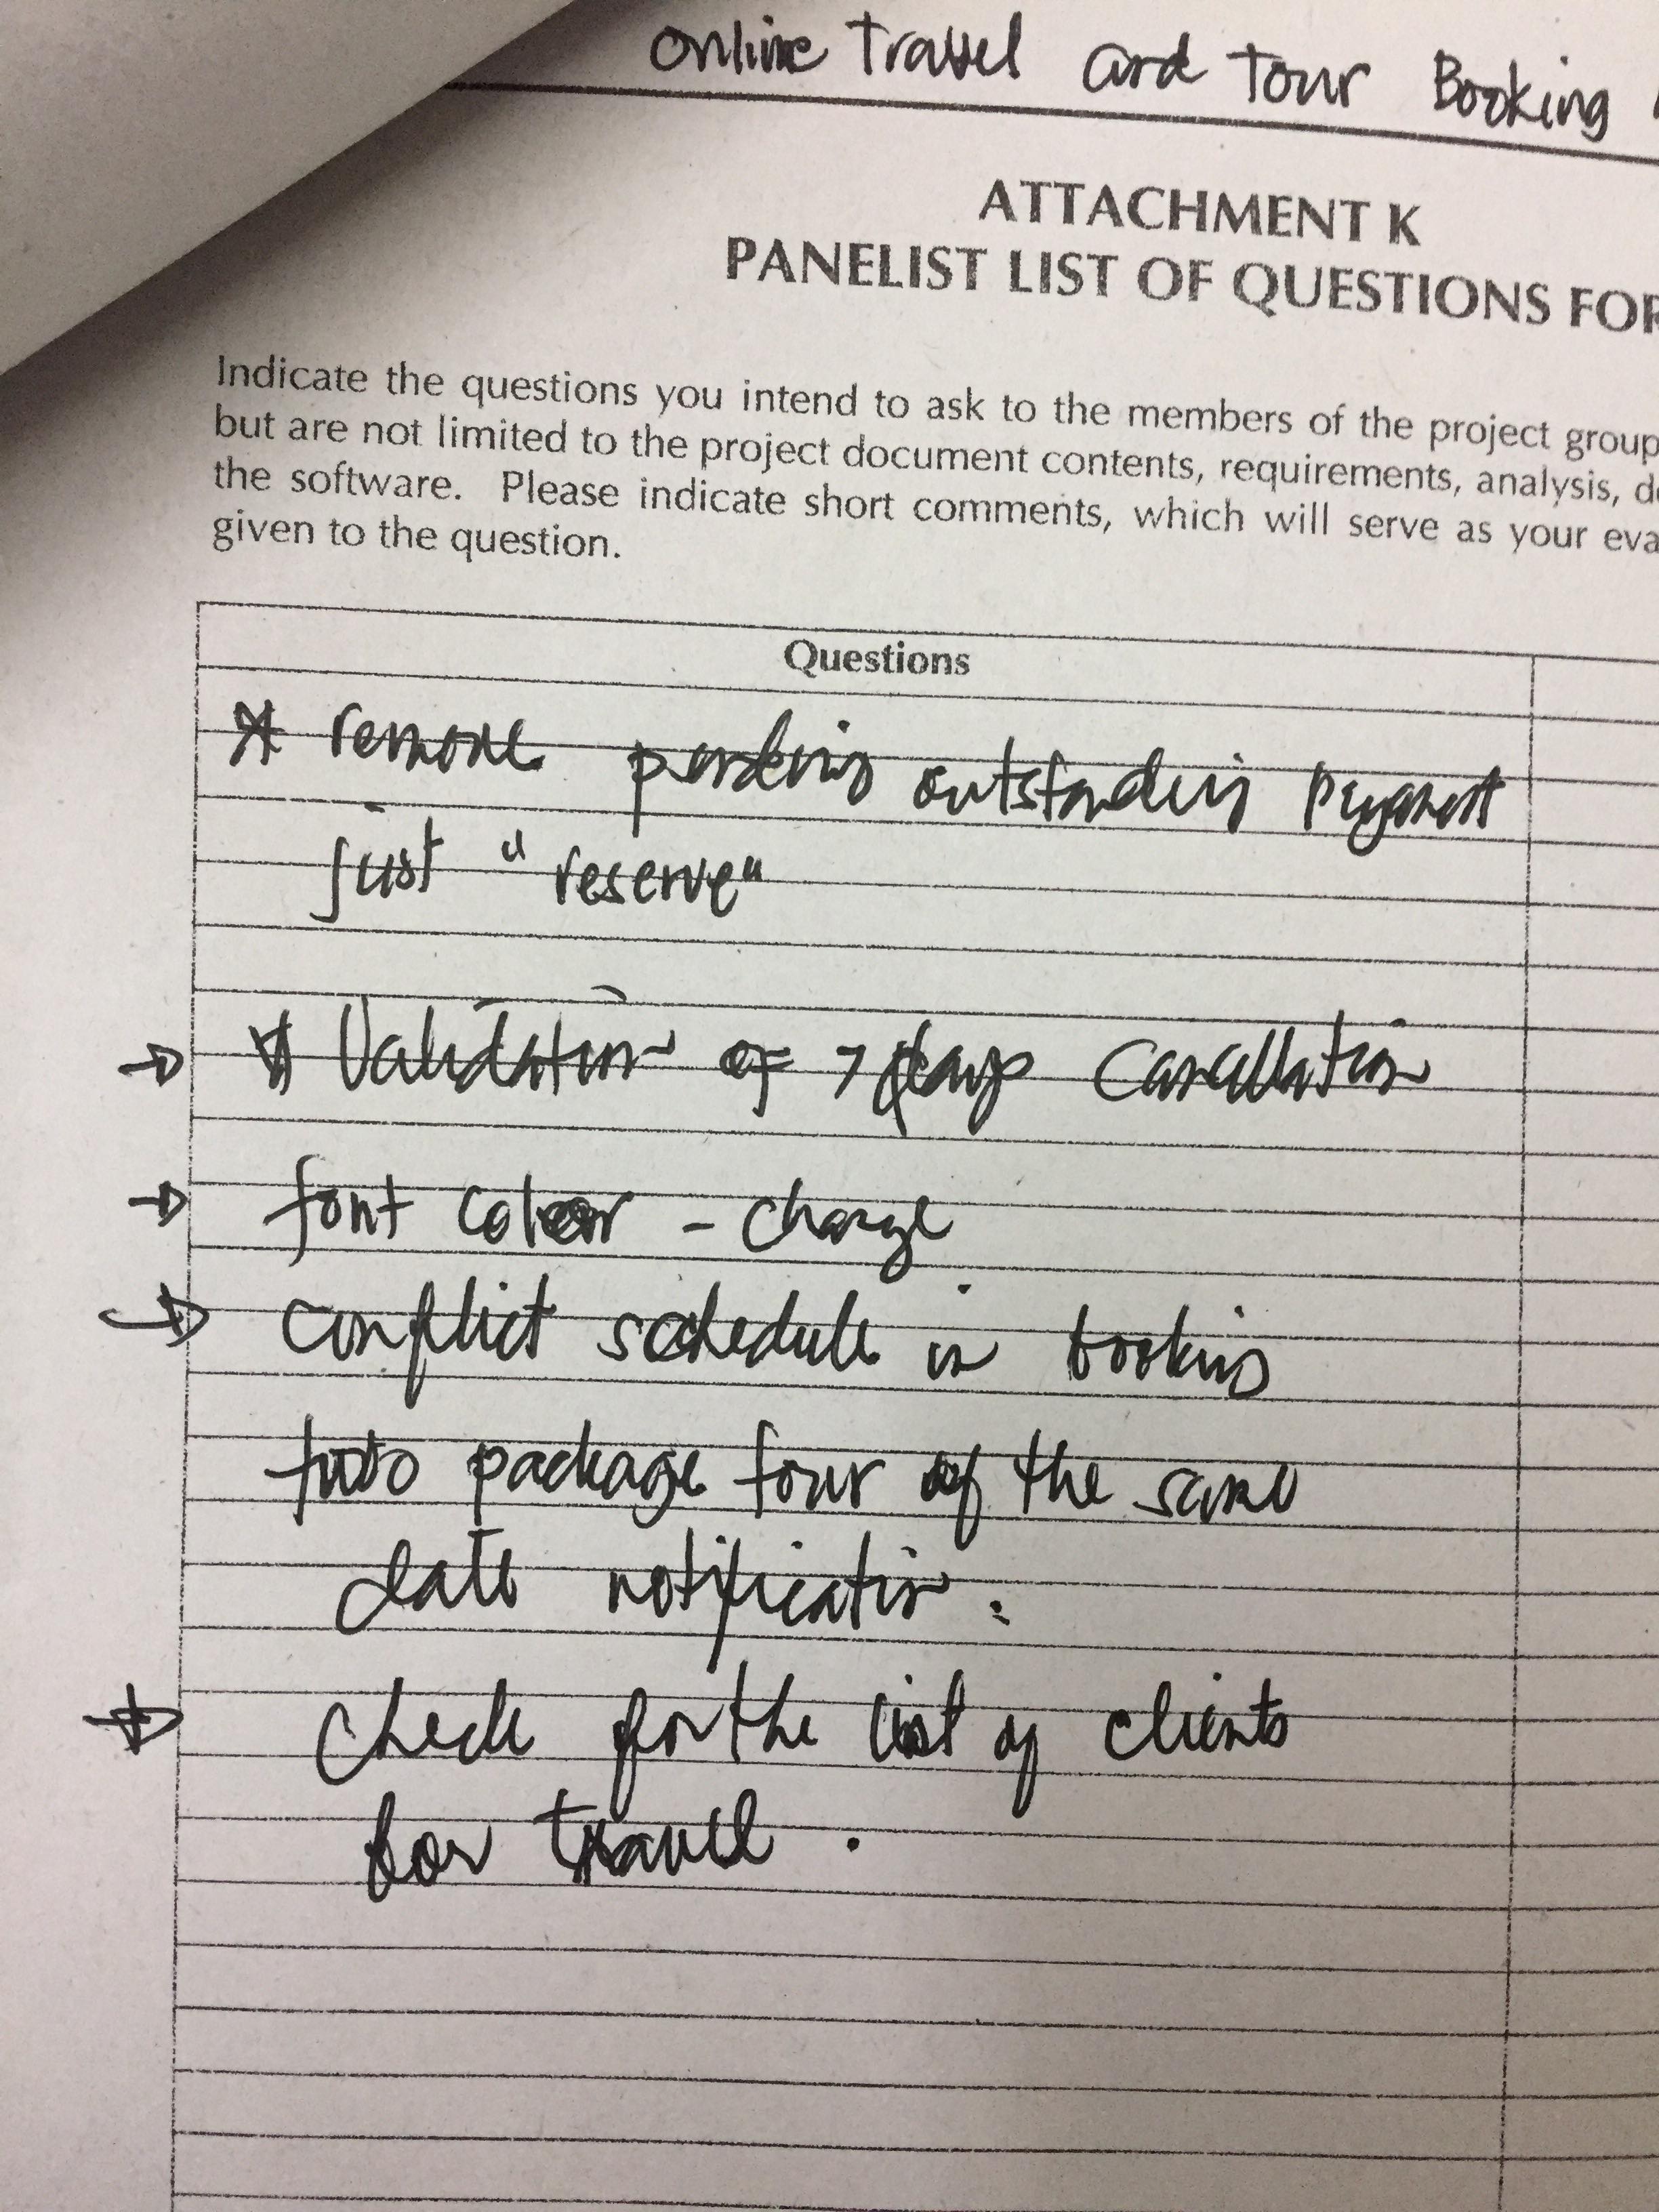 Online Travel and Tour Booking
ATTACHMENT K
PANELIST LIST OF QUESTIONS FOR
Indicate the questions you intend to ask to the members of the project group
but are not limited to the project document contents, requirements, analysis, de
the software. Please indicate short comments, which will serve as your eva
given to the question.
Questions
* remove pending outstanding payment
just "reserve"
→ * Validation of 7 days Cancellation
→ font color - change
→ conflict schedule in booking
two package tour of the same
date notification.
→ check for the list of clients
for travel.